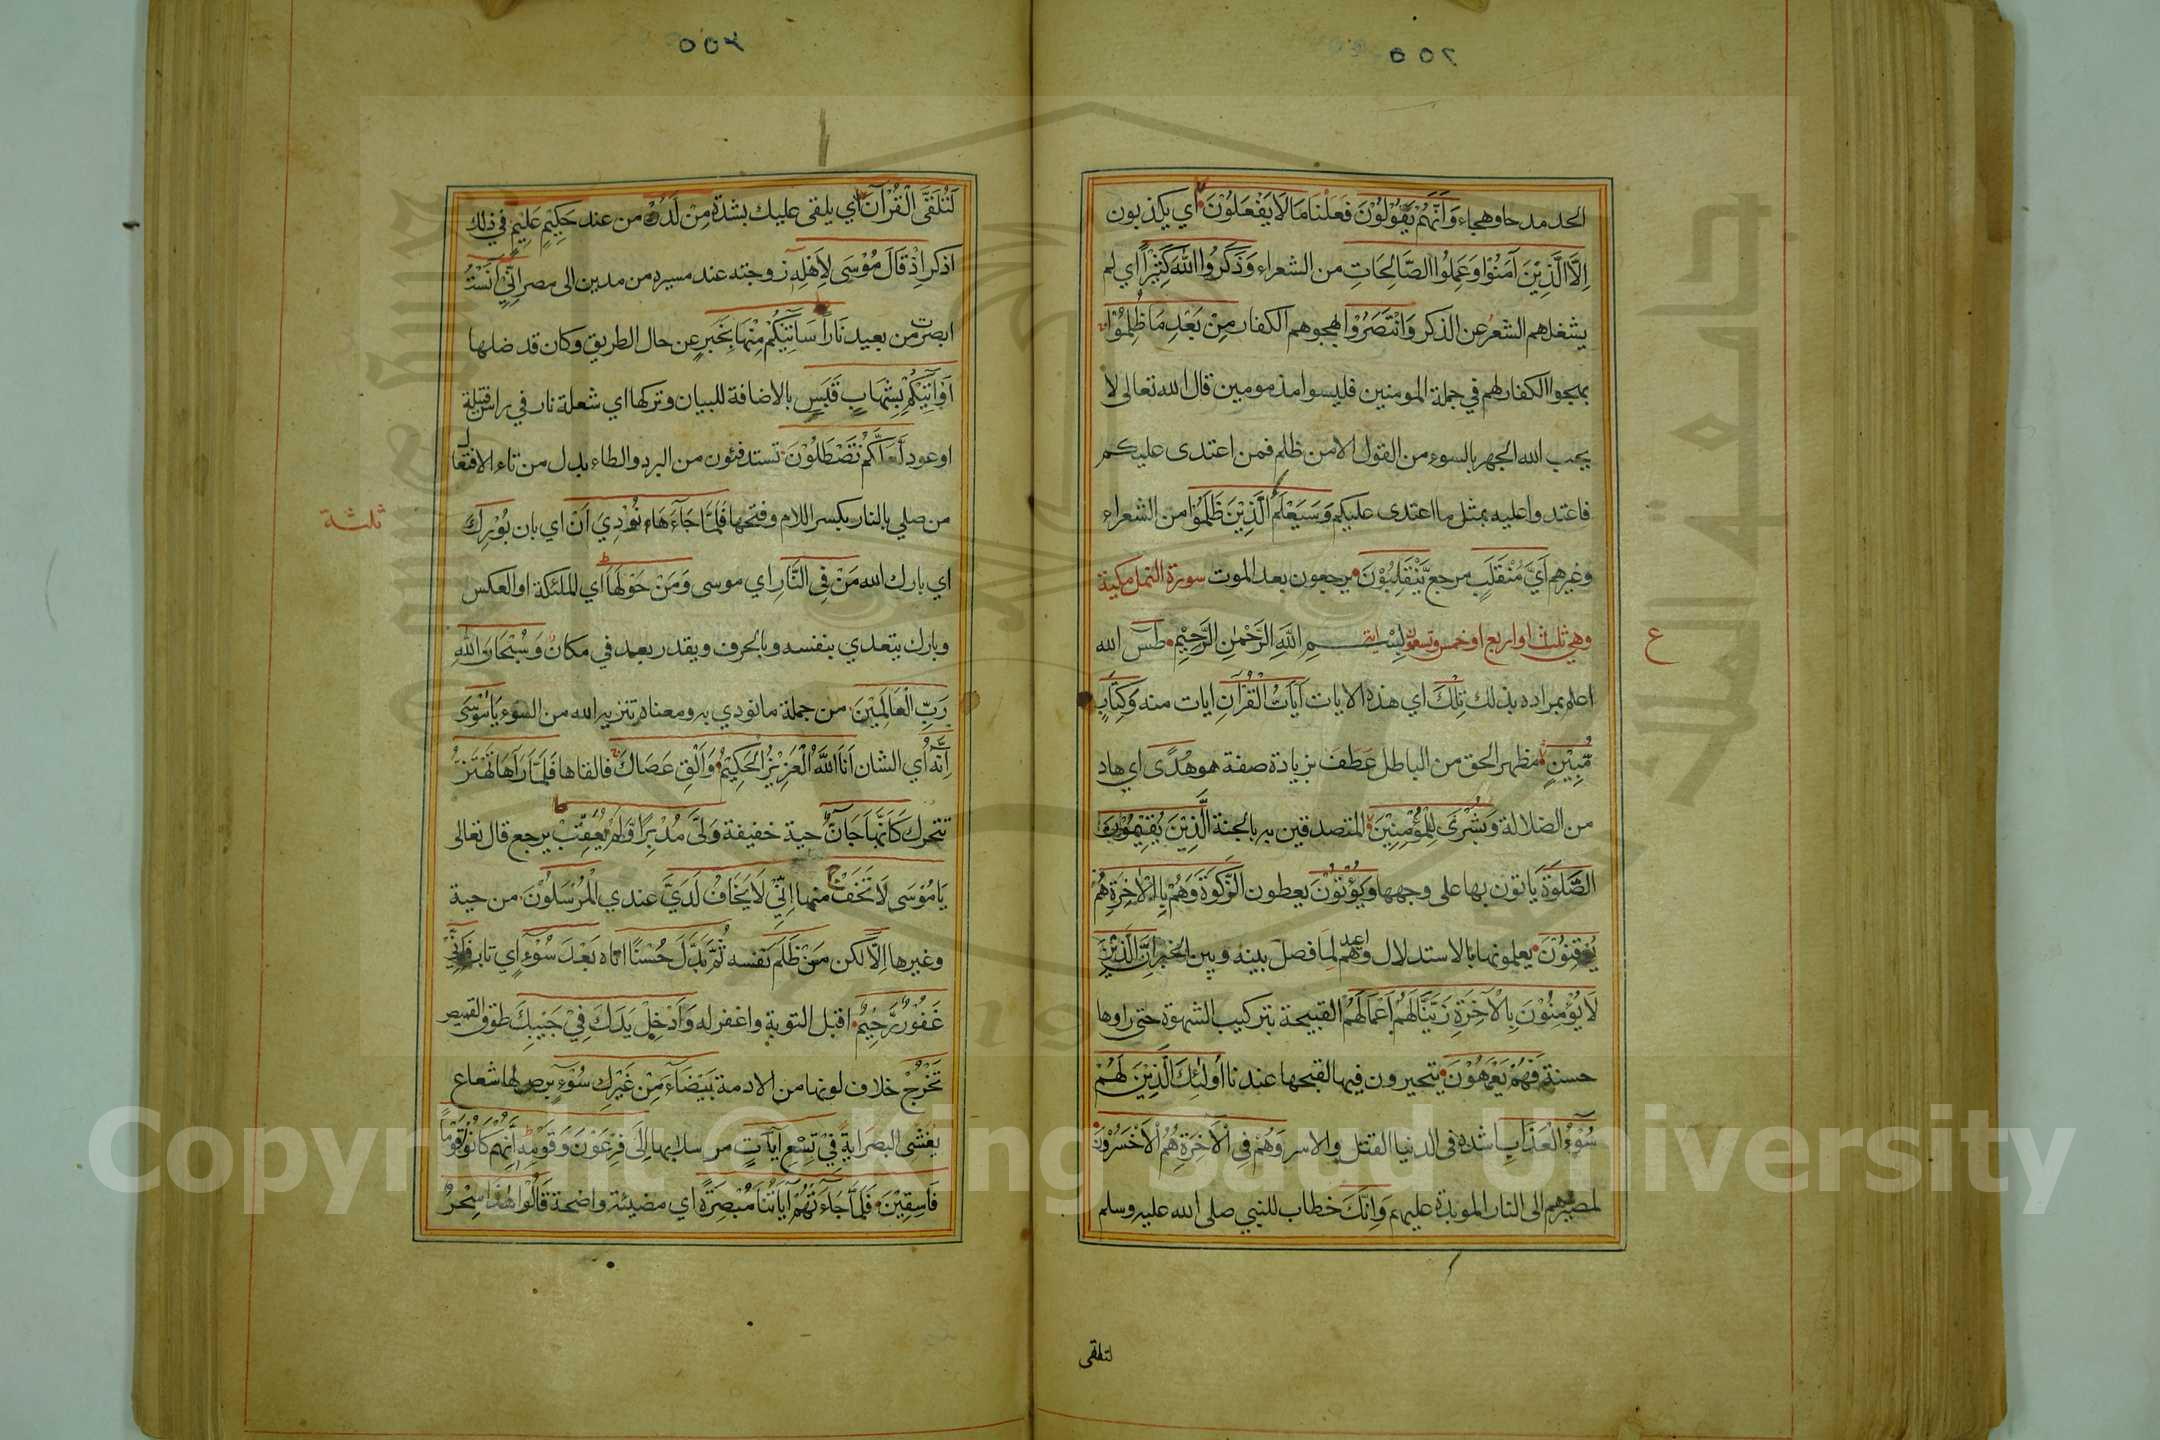 الحد مدحا وهجاء وَاَنَّهُمْ يَقُوْلُوْنَ فَعَلْنَا مَا لَا يَفْعَلُوْنَ اي يكذبون
اِلَّا الَّذِيْنَ آمَنُوْا وَعَمِلُوا الصَّالِحَاتِ من الشعراء وَذَكَرُوا اللّٰهَ كَثِيْرًا اي لم
يشغلهم الشعر عن الذكر وَانْتَصَرُوْا بهجوهم الكفار مِنْ بَعْدِ مَا ظُلِمُوْا
بهجوا الكفار لهم في جملة المومنين فليسوا مذمومين قال الله تعالى لا
يحب الله الجهر بالسوء من القول الا من ظلم فمن اعتدى عليكم
فاعتدوا عليه بمثل ما اعتدى عليكم وَسَيَعْلَمُ الَّذِيْنَ ظَلَمُوْا من الشعراء
وغيرهم اَيَّ مُنْقَلَبٍ مرجع يَّنْقَلِبُوْنَ يرجعون بعد الموت سورة النمل مكية
وهي ثلث او اربع او خمس وتسعون اية بِسْمِ اللّٰهِ الرَّحْمٰنِ الرَّحِيْمِ طٰسٓ الله
اعلم بمراده بذلك تِلْكَ اي هذه الايات آيَاتُ الْقُرْآنِ ايات منه وَكِتَابٍ
مُّبِيْنٍ مظهر الحق من الباطل عطف بزيادة صفة هو هُدًى اي هاد
من الضلالة وَبُشْرَى لِلْمُؤْمِنِيْنَ المتصدقين به بالجنة الَّذِيْنَ يُقِيْمُوْنَ
الصَّلٰوةَ ياتون بها على وجهها وَيُؤْتُوْنَ يعطون الزَّكٰوةَ وَهُمْ بِالْآخِرَةِ هُمْ
يُوْقِنُوْنَ يعلمونها بالاستدلال واعيد هم لما فصل بينه وبين الخبر اِنَّ الَّذِيْنَ
لَا يُؤْمِنُوْنَ بِالْآخِرَةِ زَيَّنَّا لَهُمْ اَعْمَالَهُمْ القبيحة بتركيب الشهوة حتى راوها
حسنة فَهُمْ يَعْمَهُوْنَ يتحيرون فيها لقبحها عندنا اُولٰئِكَ الَّذِيْنَ لَهُمْ
سُوْءُ الْعَذَابِ شده في الدنيا القتل والاسر وَهُمْ فِي الْآخِرَةِ هُمُ الْاَخْسَرُوْنَ
لمصيرهم الى النار الموبدة عليهم وَاِنَّكَ خطاب للنبي صلى الله عليه وسلم
لتلقى
ع
لَتُلَقَّى الْقُرْآنَ اي يلقى عليك بشدة مِنْ لَدُنْ من عند حَكِيْمٍ عَلِيْمٍ في ذلك
اذكر اِذْ قَالَ مُوْسَى لِاَهْلِهٖ زوجته عند مسيره من مدين الى مصر اِنِّيْ آنَسْتُ
ابصرت من بعيد نَارًا سَآتِيْكُمْ مِنْهَا بِخَبَرٍ عن حال الطريق وكان قد ضلها
اَوْ آتِيْكُمْ بِشِهَابٍ قَبَسٍ بالاضافة للبيان وتركها اي شعلة نار في راس فتيلة
او عود لَّعَلَّكُمْ تَصْطَلُوْنَ تستدفئون من البرد والطاء بدل من تاء الافتعال
من صلي بالنار بكسر اللام وفتحها فَلَمَّا جَآءَهَا نُوْدِيَ اَنْ اي بان بُوْرِكَ
اي بارك الله مَنْ فِي النَّارِ اي موسى وَمَنْ حَوْلَهَا اي الملئكة او العكس
وبارك يتعدي بنفسه وبالحرف ويقدر بعد في مكان وَسُبْحَانَ اللّٰهِ
رَبِّ الْعَالَمِيْنَ من جملة ما نودي به ومعناه تنزيه الله من السوء يَا مُوْسَى
اِنَّهٗ اي الشان اَنَا اللّٰهُ الْعَزِيْزُ الْحَكِيْمُ وَاَلْقِ عَصَاكَ فالقاها فَلَمَّا رَآهَا تَهْتَزُّ
تتحرك كَاَنَّهَا جَانٌّ حية خفيفة وَلَّى مُدْبِرًا وَّلَمْ يُعَقِّبْ يرجع قال تعالى
يَا مُوْسَى لَا تَخَفْ منها اِنِّيْ لَا يَخَافُ لَدَيَّ عندي الْمُرْسَلُوْنَ من حية
وغيرها اِلَّا لكن مَنْ ظَلَمَ نفسه ثُمَّ بَدَّلَ حُسْنًا اتاه بَعْدَ سُوْءٍ اي تاب فَاِنِّيْ
غَفُوْرٌ رَّحِيْمٌ اقبل التوبة واغفر له وَاَدْخِلْ يَدَكَ فِيْ جَيْبِكَ طوق القميص
تَخْرُجْ خلاف لونها من الادمة بَيْضَآءَ مِنْ غَيْرِ سُوْءٍ برص لها شعاع
يغشى البصر اية فِيْ تِسْعِ آيَاتٍ مرسلا بها اِلَى فِرْعَوْنَ وَقَوْمِهٖ اِنَّهُمْ كَانُوْا قَوْمًا
فَاسِقِيْنَ فَلَمَّا جَآءَتْهُمْ آيَاتُنَا مُبْصِرَةً اي مضيئة واضحة قَالُوْا هٰذَا سِحْرٌ
ثلثة
Copyright © King Saud University